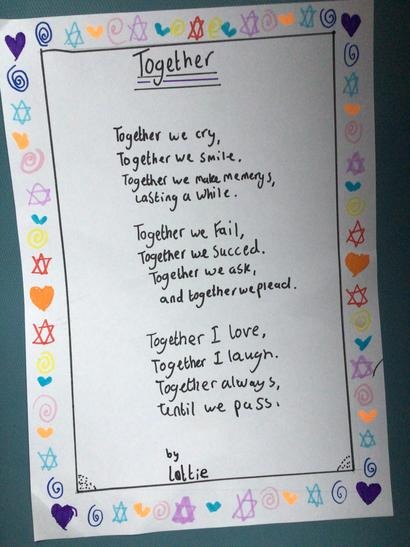 Together
Together we cry,
Together we smile.
Together we make memerys,
Lasting a while.
Together we Fail,
Together we Succed.
Together we ask,
and together we plead.
Together I love,
Together I laugh.
Together always,
Until we pass.
by
Lottie